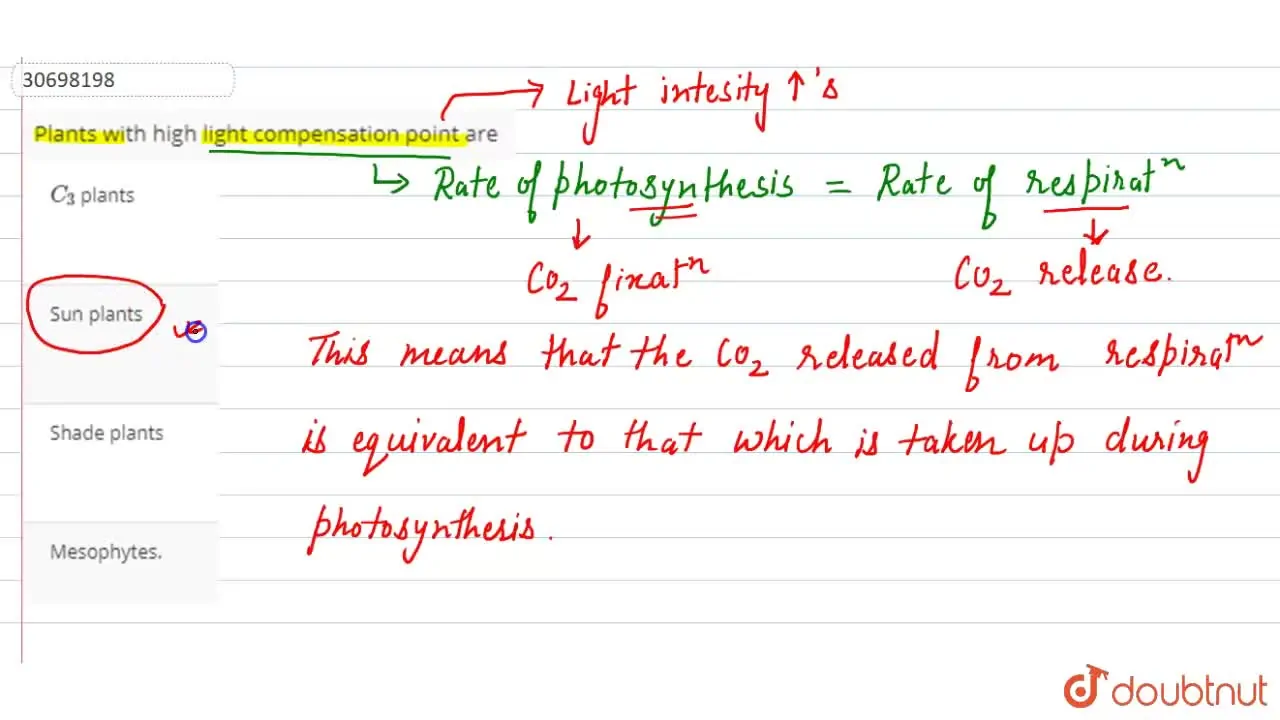 30698198
Light intesity ↑'s
Plants with high light compensation point are
↳ Rate of photosynthesis = Rate of respiratⁿ
C₃ plants
↓ ↓
CO₂ fixatⁿ CO₂ release.
Sun plants
This means that the CO₂ released from respiratⁿ
Shade plants
is equivalent to that which is taken up during
photosynthesis.
Mesophytes.
doubtnut